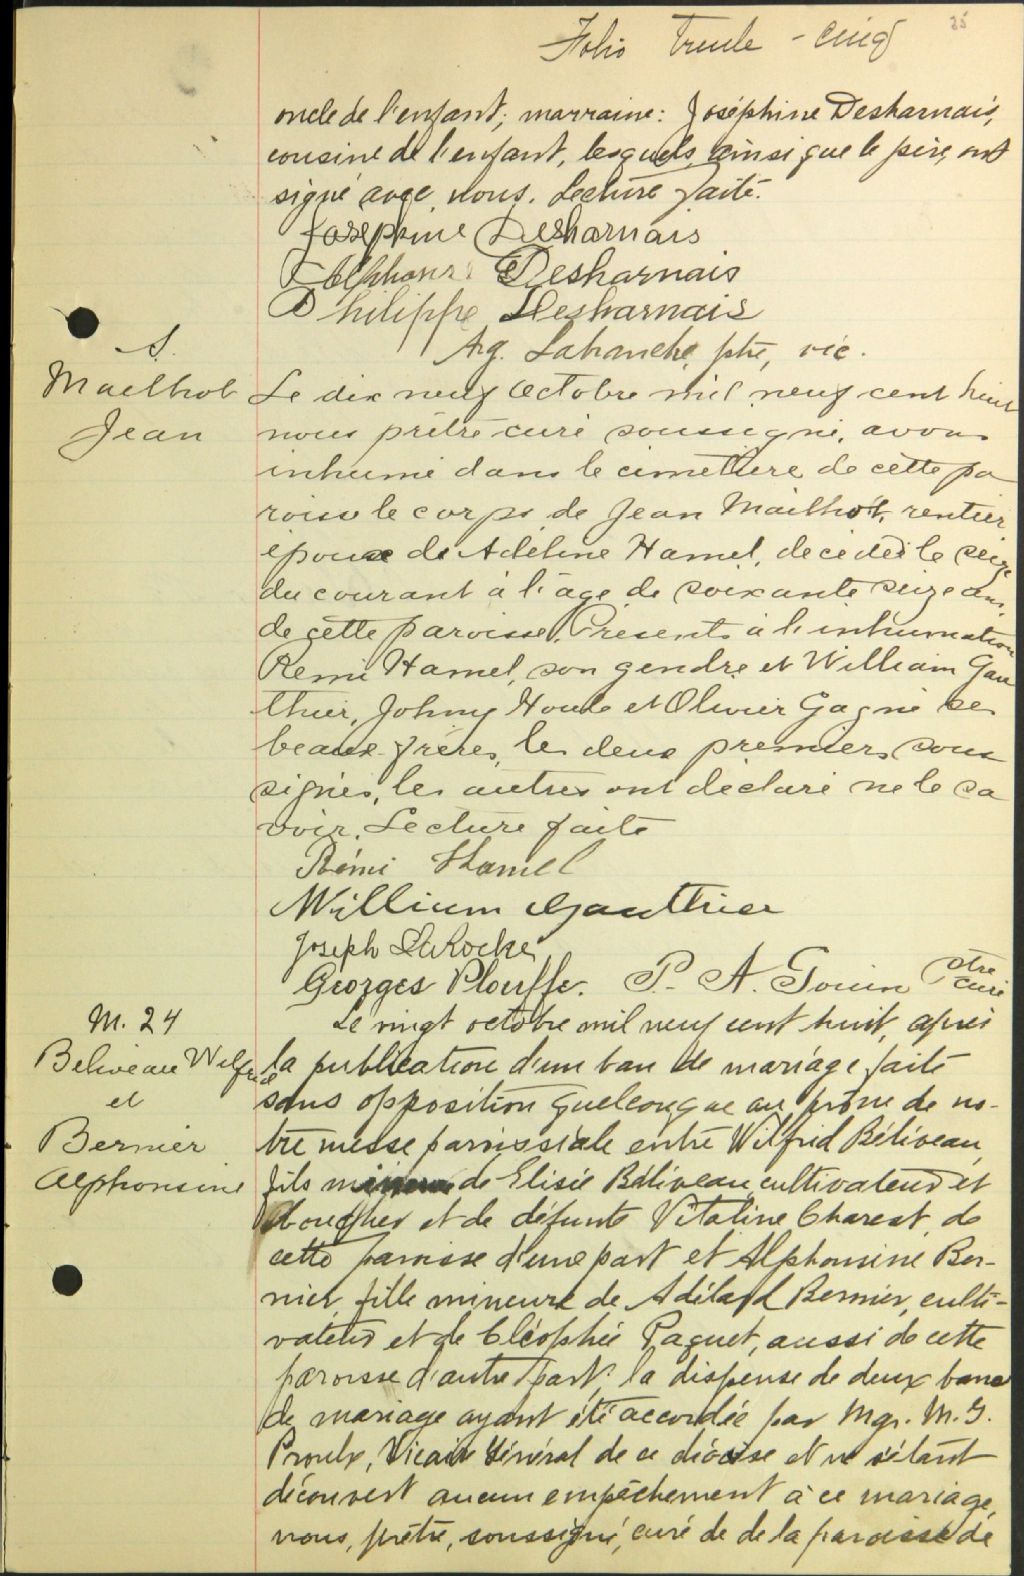 Folio Trente - cinq
35
oncle de l'enfant; marraine: Joséphine Desharnais,
cousine de l'enfant, lesquels, ainsi que le père, ont
signé avec nous. Lecture faite.
Joséphine Desharnais
Alphonse Desharnais
Philippe Desharnais
Arg. Labranche, ptre, vic.
S.
Mailhot
Jean
Le dix neuf Octobre mil neuf cent huit
nous prêtre curé soussigné, avons
inhumé dans le cimetière de cette pa
roisse le corps de Jean Mailhot, rentier
époux de Adéline Hamel, décédé le seize
du courant à l'âge de soixante seize ans,
de cette paroisse. Présents à l'inhumation
Remi Hamel, son gendre et William Gau
thier, Johny Houle et Olivier Gagné ses
beaux-frères, les deux premiers sous
signés, les autres ont déclaré ne le sa
voir. Lecture faite
Rémi Hamel
William Gauthier
Joseph LaRocke
Georges Plouffe. P. A. Gouin Ptre curé
M. 24
Beliveau Wilfrid
et
Bernier
Alphonsine
Le vingt octobre mil neuf cent huit, après
la publication d'un ban de mariage faite
sans opposition quelconque au prône de no-
tre messe paroissiale entre Wilfrid Béliveau,
fils de Elisée Béliveau, cultivateur et
boucher et de défunte Vitaline Charest, de
cette paroisse d'une part et Alphonsine Ber-
nier, fille mineure de Adélard Bernier, culti-
vateur et de Cléophée Paquet, aussi de cette
paroisse d'autre part; la dispense de deux bans
de mariage ayant été accordée par Mgr. M. G.
Proulx, Vicaire Général de ce diocèse et ne s'étant
découvert aucun empêchement à ce mariage,
nous, prêtre, soussigné, curé de de la paroisse de